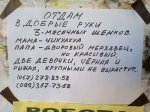 ОТДАМ
В ДОБРЫЕ РУКИ
3-МЕСЯЧНЫХ ЩЕНКОВ.
МАМА - ЧИХУАХУА
ПАПА - ДВОРОВЫЙ МЕРЗАВЕЦ,
НО КРАСИВЫЙ.
ДВЕ ДЕВОЧКИ, ЧЁРНАЯ И
РЫЖАЯ, КРУПНЫМИ НЕ ВЫРАСТУТ.